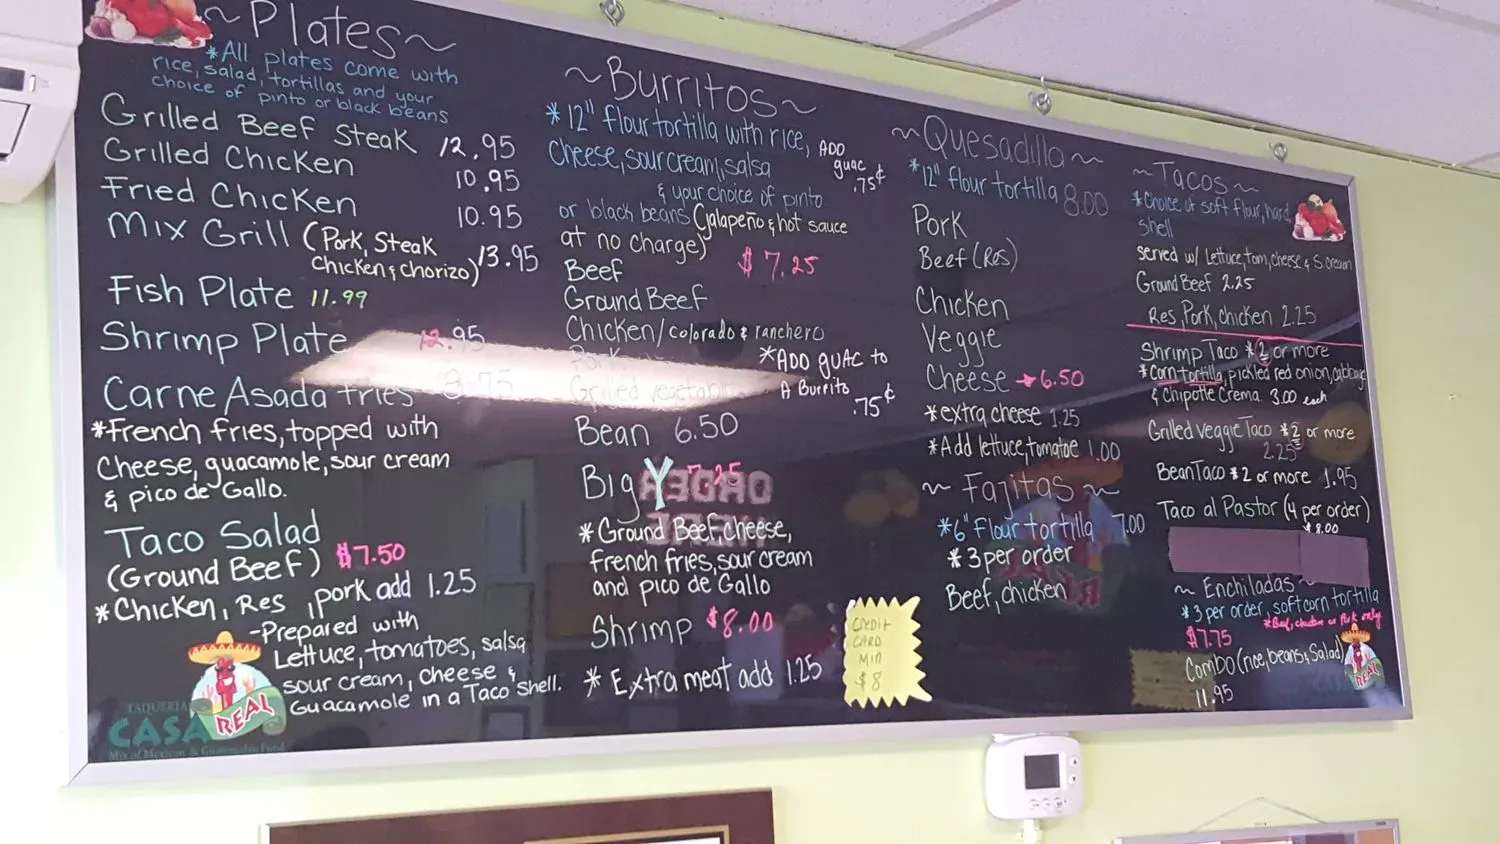 ~Plates~
*All plates come with
rice, salad, tortillas and your
choice of pinto or black beans
Grilled Beef Steak 12.95
Grilled Chicken 10.95
Fried Chicken 10.95
Mix Grill (Pork, Steak
Chicken & Chorizo) 13.95
Fish Plate 11.99
Shrimp Plate 12.95
Carne Asada fries 8.75
*French fries, topped with
Cheese, guacamole, sour cream
& pico de Gallo.
Taco Salad
(Ground Beef) $7.50
*Chicken, Res, pork add 1.25
-Prepared with
Lettuce, tomatoes, salsa
sour cream, cheese &
Guacamole in a Taco shell.
TAQUERIA
CASA REAL
Mix of Mexican & Guatemalan Food
~Burritos~
*12" flour tortilla with rice,
cheese, sour cream, salsa
& your choice of pinto
or black beans (jalapeño & hot sauce
at no charge)
ADD
guac
.75¢
$7.25
Beef
Ground Beef
Chicken/colorado & ranchero
Pork
Grilled vegetables
*ADD guac to
A Burrito
.75¢
Bean 6.50
Big Y 7.25
*Ground Beef, cheese,
french fries, sour cream
and pico de Gallo
Shrimp $8.00
*Extra meat add 1.25
CREDIT
CARD
MIN
$8
~Quesadillo~
*12" flour tortilla 8.00
Pork
Beef (Res)
Chicken
Veggie
Cheese → 6.50
*extra cheese 1.25
*Add lettuce, tomatoe 1.00
~Fajitas~
*6" Flour tortilla 7.00
*3 per order
Beef, chicken
~Tacos~
*Choice of soft flour, hard
shell
served w/ Lettuce, tom, cheese & s.cream
Ground Beef 2.25
Res, Pork, chicken 2.25
Shrimp Taco *2 or more
*Corn tortilla, pickled red onion, cabbage
& Chipotle Crema 3.00 each
Grilled Veggie Taco *2 or more
2.25
Bean Taco *2 or more 1.95
Taco al Pastor (4 per order)
$8.00
~Enchiladas~
*3 per order, soft corn tortilla
*Beef, chicken or Pork only
$7.75
Combo (rice, beans & Salad)
11.95
REAL
ORDER
HERE